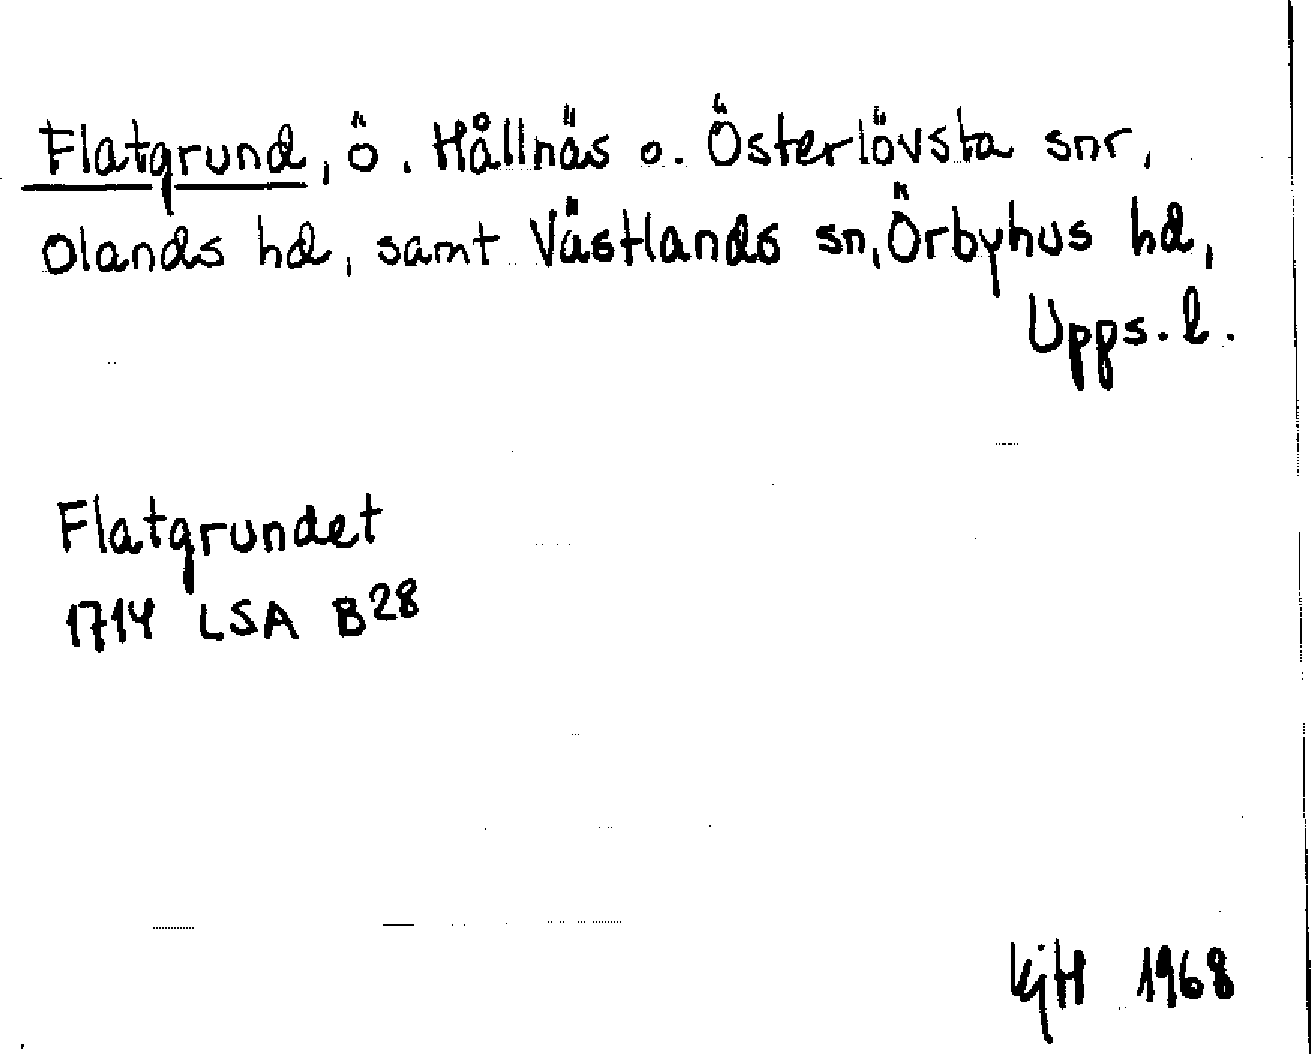 Flatgrund, ö. Hållnäs o. Österlövsta snr,
Olands hd, samt Västlands sn, Örbyhus hd,
Upps. l.
Flatgrundet
1714 LSA B28
KjH 1968